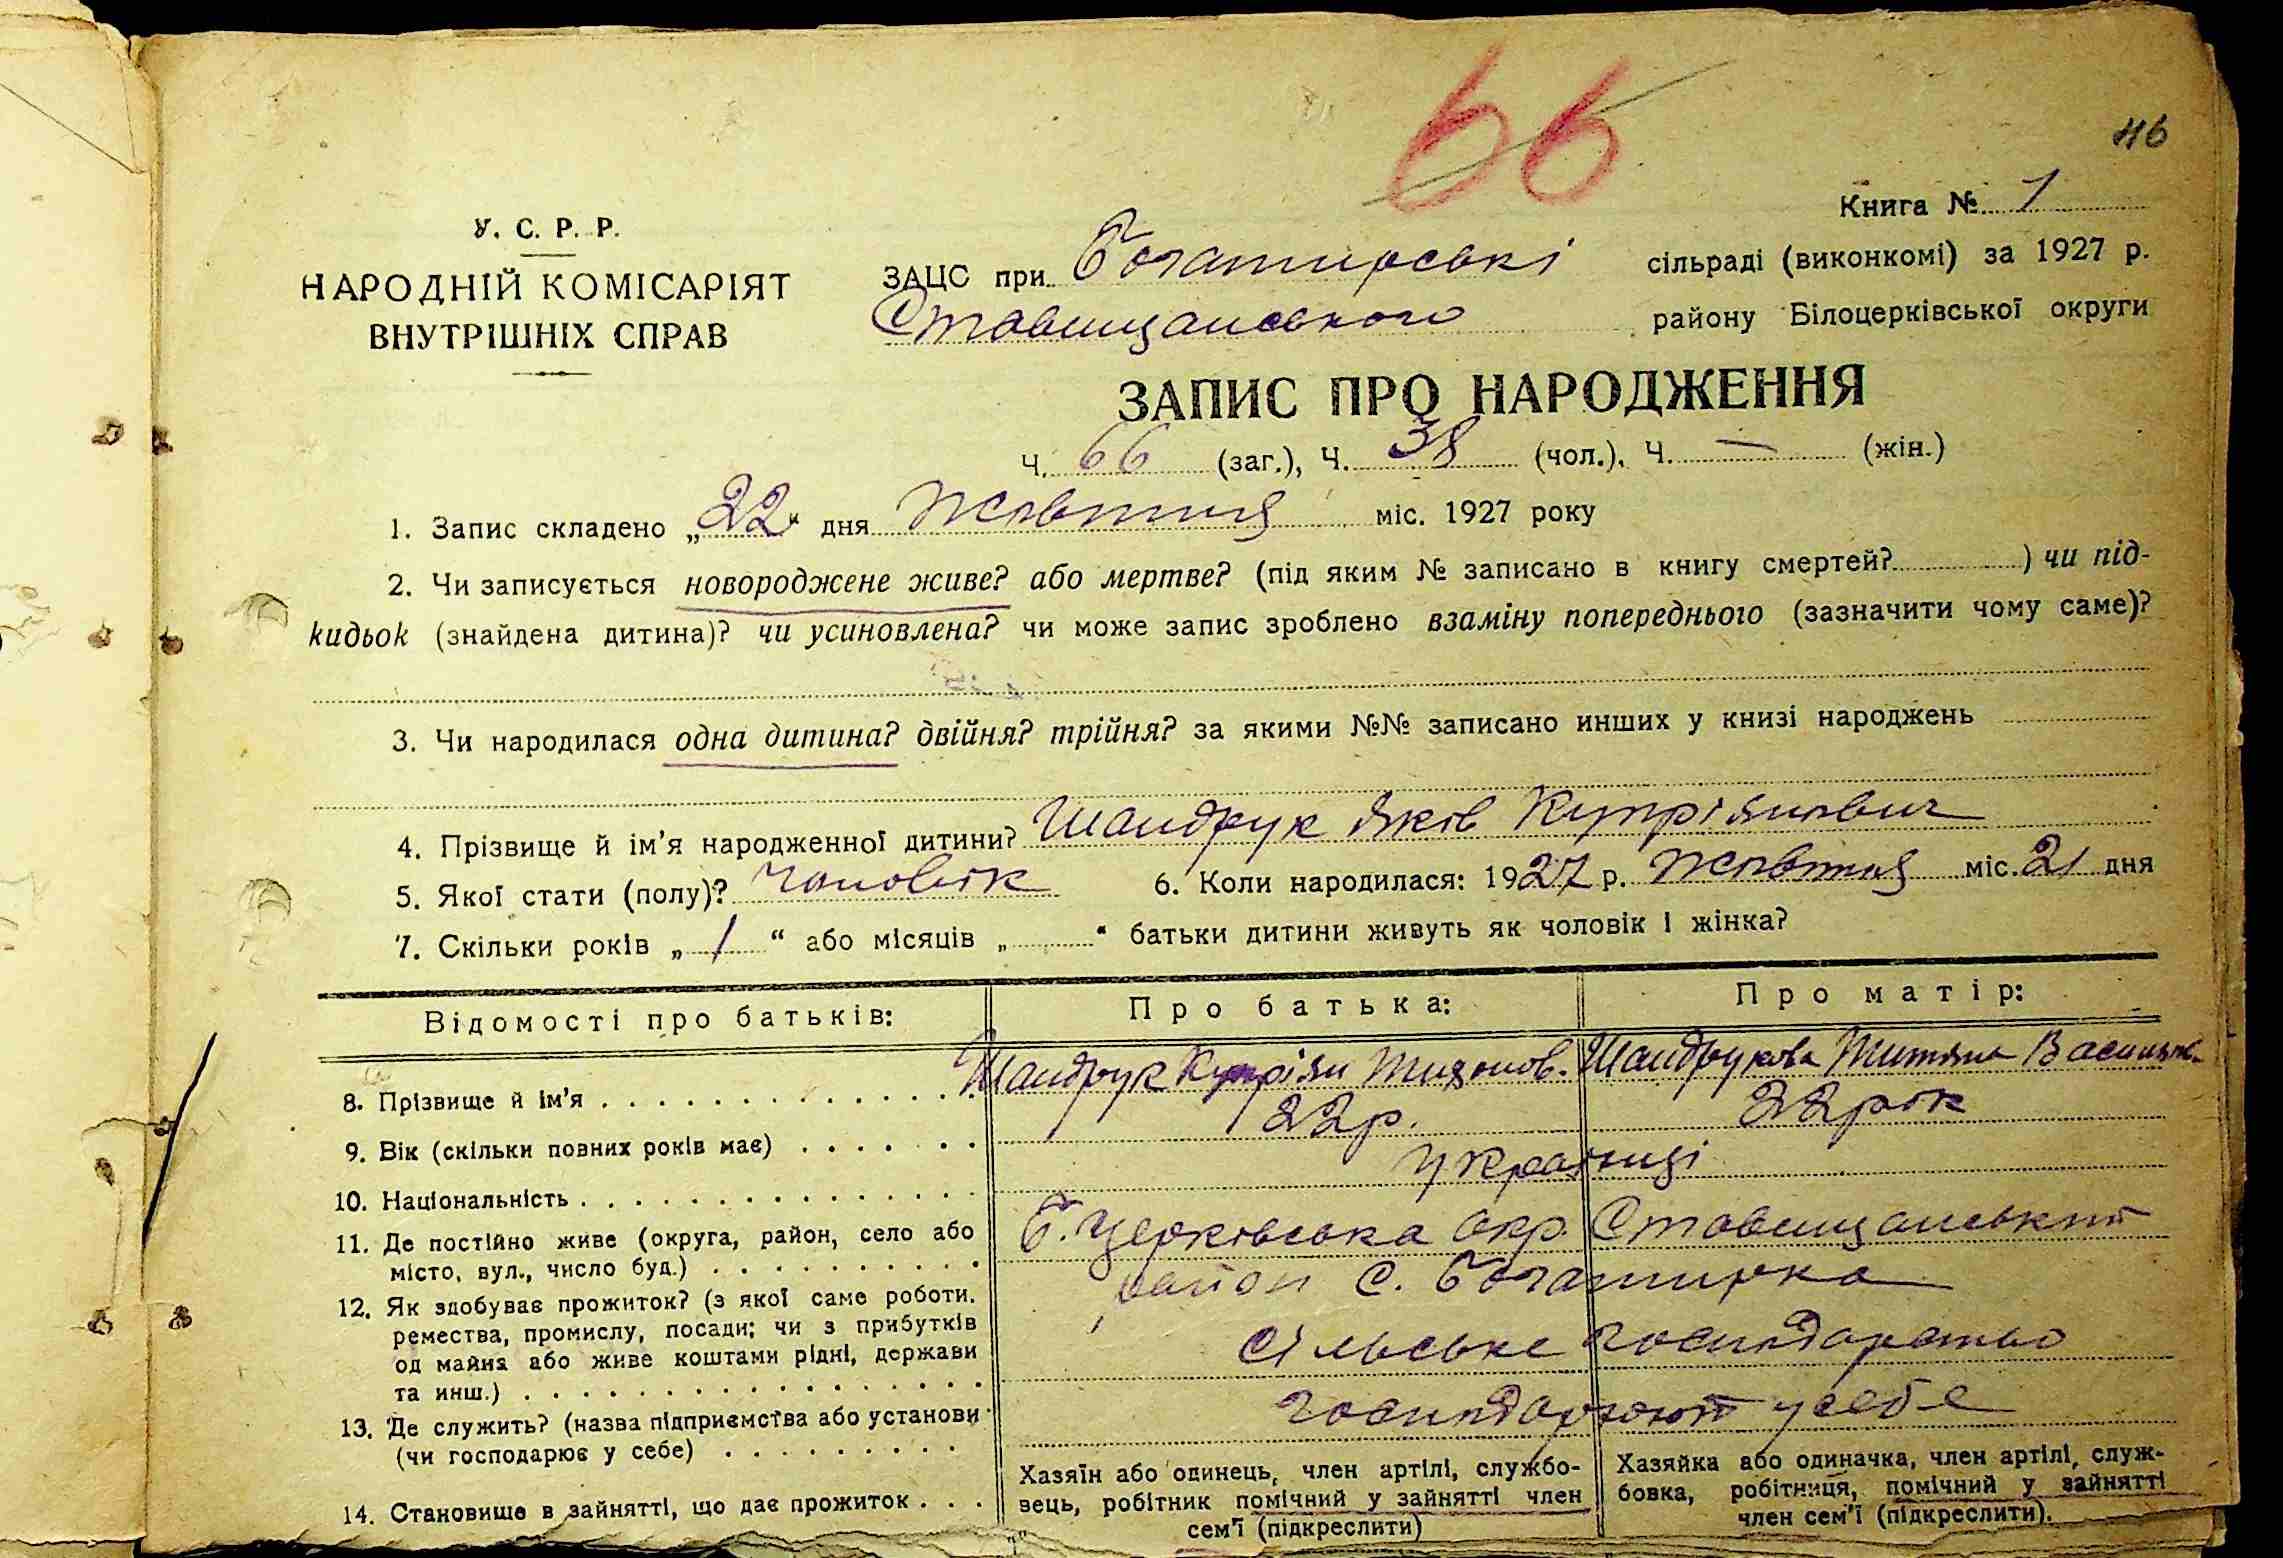 66
46
Книга № 1
У. С. Р. Р.
НАРОДНІЙ КОМІСАРІЯТ
ВНУТРІШНІХ СПРАВ
ЗАЦС при Богатирські сільраді (виконкомі) за 1927 р.
Ставищанського району Білоцерківської округи
ЗАПИС ПРО НАРОДЖЕННЯ
Ч. 66 (заг.), Ч. 38 (чол.), Ч. — (жін.)
1. Запис складено „22“ дня Жовтня міс. 1927 року
2. Чи записується новороджене живе? або мертве? (під яким № записано в книгу смертей? ) чи під-
кидьок (знайдена дитина)? чи усиновлена? чи може запис зроблено взаміну попереднього (зазначити чому саме)?
3. Чи народилася одна дитина? двійня? трійня? за якими №№ записано инших у книзі народжень
4. Прізвище й ім'я народженної дитини? Шандрук Яків Купріянович
5. Якої стати (полу)? Чоловік 6. Коли народилася: 1927 р. Жовтня міс. 21 дня
7. Скільки років „ 1 “ або місяців „ “ батьки дитини живуть як чоловік і жінка?
Відомості про батьків: Про батька: Про матір:
8. Прізвище й ім'я Шандрук Купріян Тихонов. Шандрукова Титяна
9. Вік (скільки повних років має) 22 р. 22 рок
10. Національність Українці
11. Де постійно живе (округа, район, село або
місто, вул., число буд.) Б. Церківська окр. Ставищанський
район с. Богатирка
12. Як здобуває прожиток? (з якої саме роботи,
ремества, промислу, посади; чи з прибутків
од майна або живе коштами рідні, держави
та инш.) сільське господарство
13. Де служить? (назва підприємства або установи
(чи господарює у себе) господарюют у себе
14. Становище в зайнятті, що дає прожиток
Хазяїн або одинець, член артілі, службо-
вець, робітник помічний у зайнятті член
сем'ї (підкреслити)
Хазяйка або одиначка, член артілі, служ-
бовка, робітниця, помічний у зайнятті
член сем'ї (підкреслити).